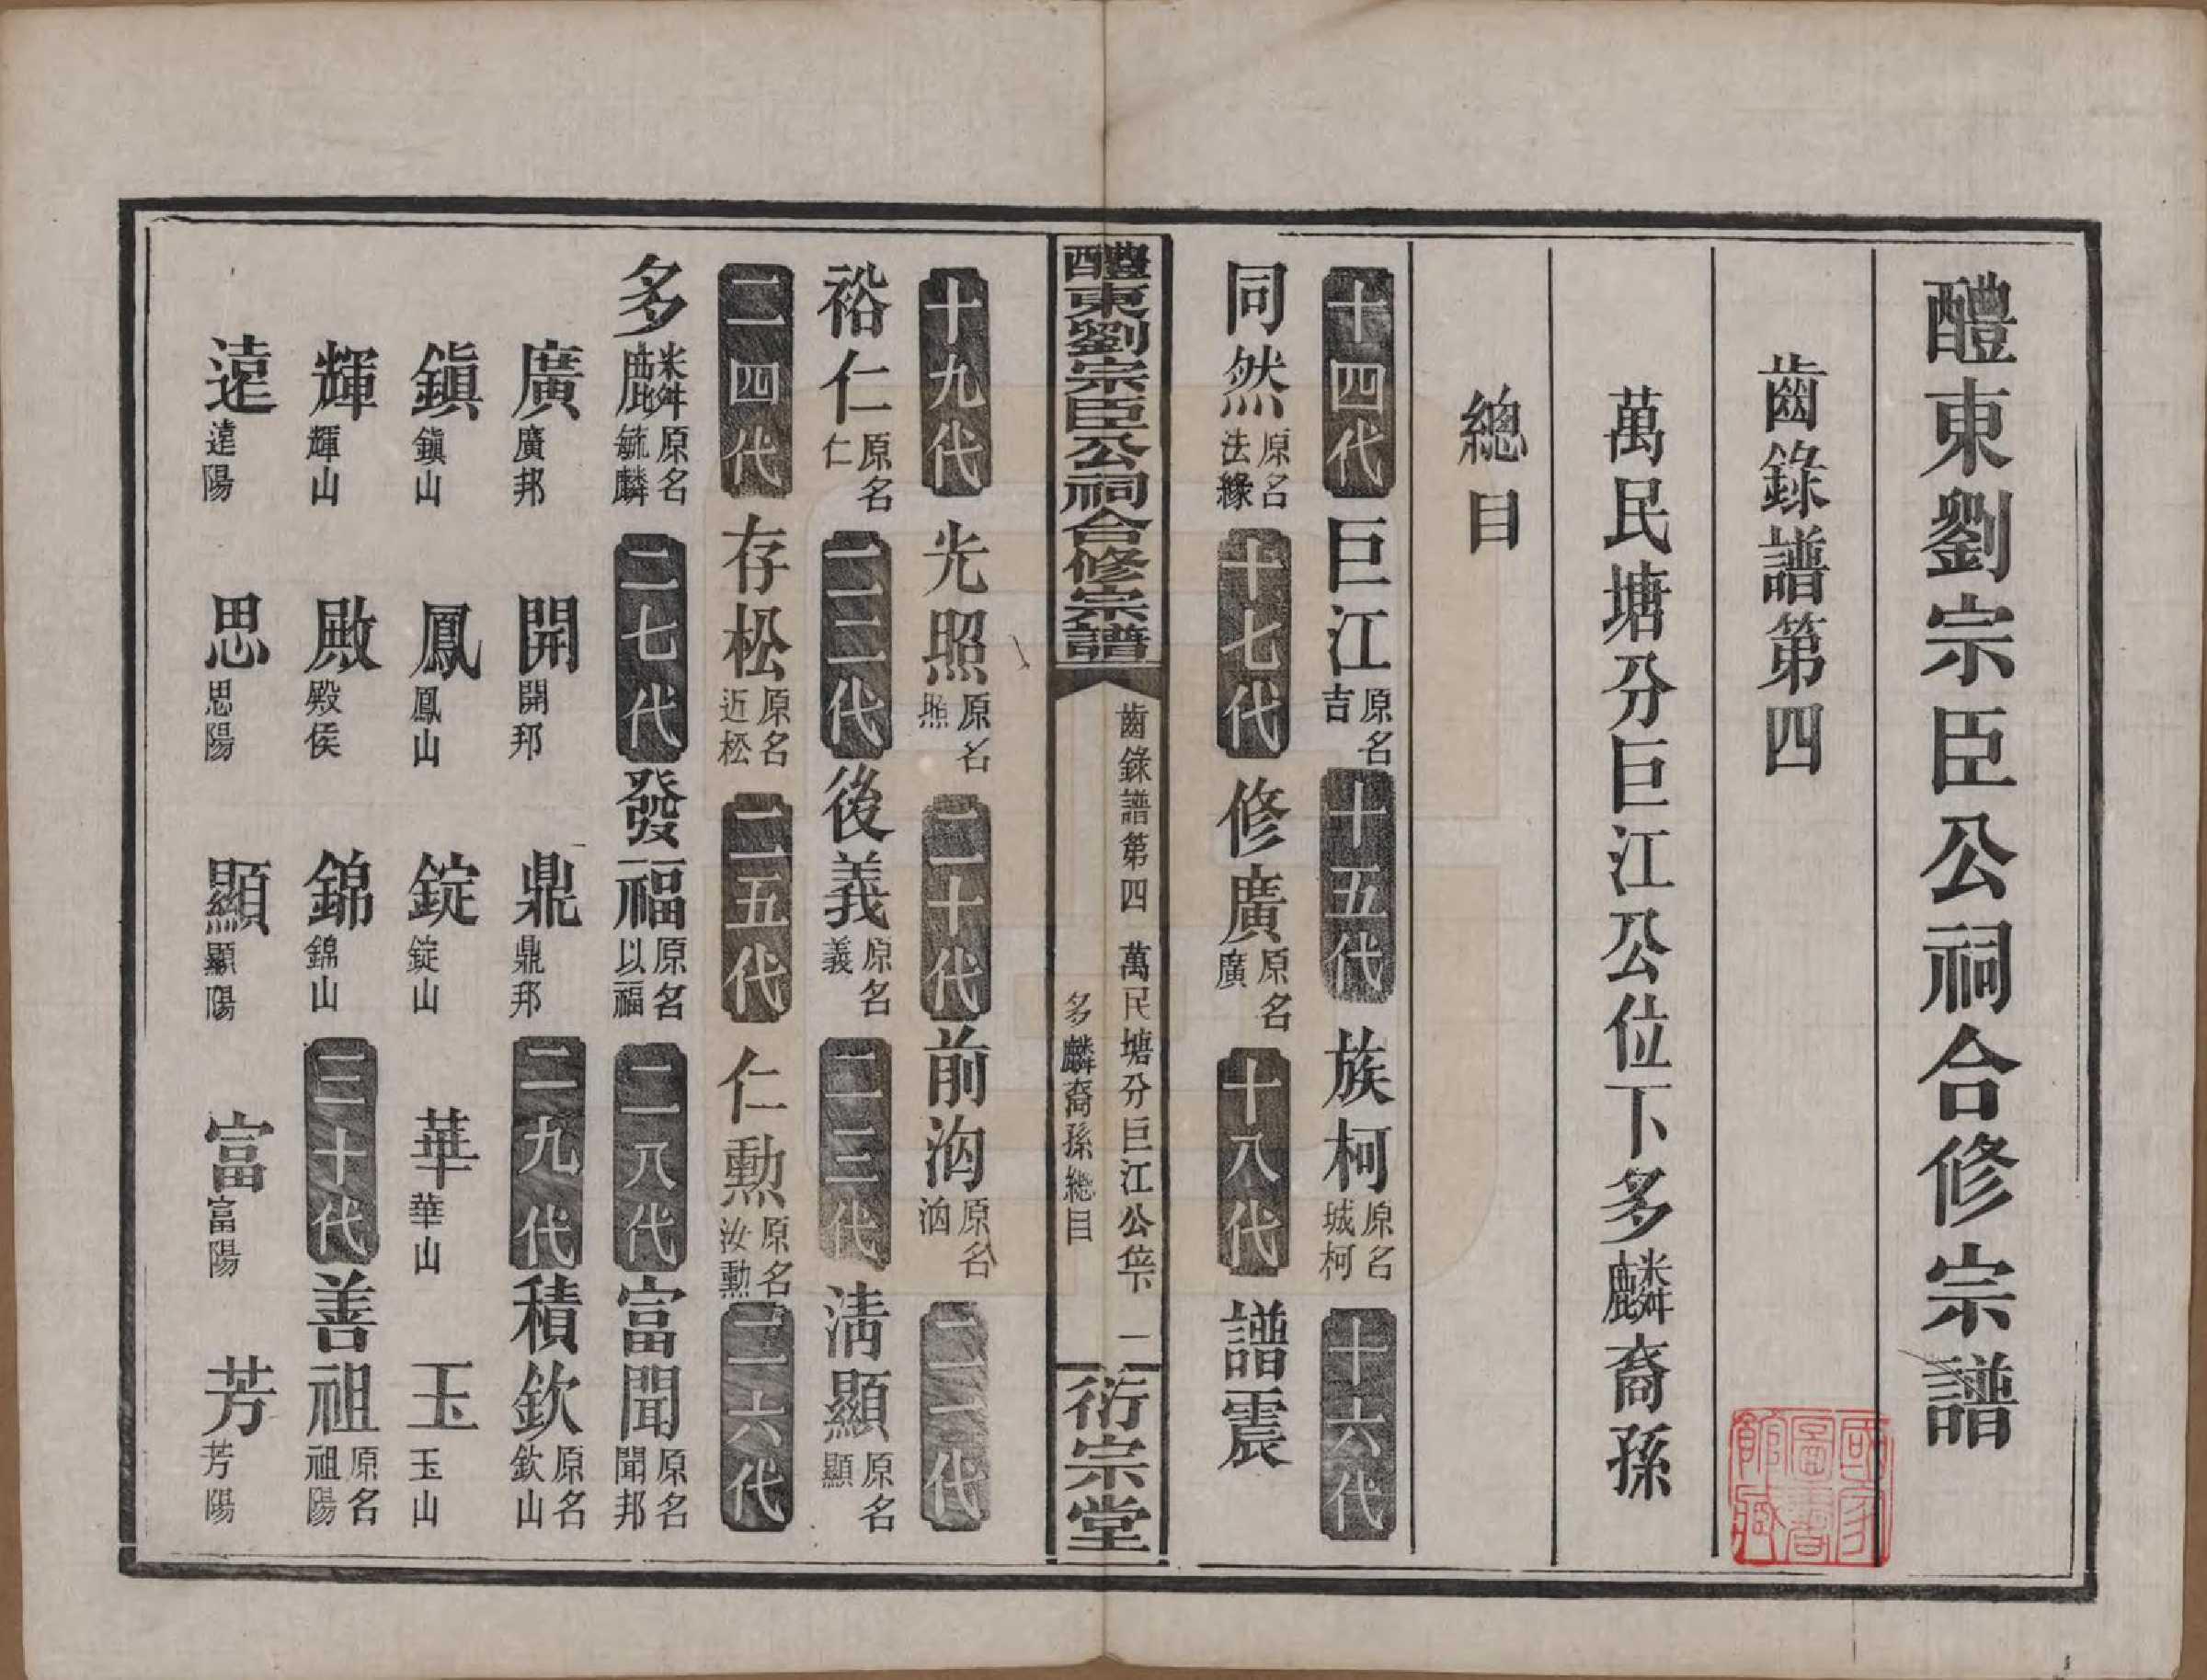 醴東劉宗臣公祠合修宗譜
齒錄譜第四
萬民塘分巨江公位下多麟裔孫
總目
十四代 巨江 原名吉 十五代 族柯 原名城柯 十六代
同然 原名法緣 十七代 修廣 原名廣 十八代 譜震
醴東劉宗臣公祠合修宗譜 齒錄譜第四 萬民塘分巨江公位下多麟裔孫總目 一 衍宗堂
十九代 光照 原名照 二十代 前洶 原名洶 二一代
裕仁 原名仁 二二代 後義 原名義 二三代 清顯 原名顯
二四代 存松 原名近松 二五代 仁勲 原名汝勲 二六代
多麟 原名毓麟 二七代 發福 原名以福 二八代 富聞 原名聞邦
廣 廣邦 開 開邦 鼎 鼎邦 二九代 積欽 原名欽山
鎭 鎭山 鳳 鳳山 錠 錠山 華 華山 玉 玉山
輝 輝山 殿 殿侯 錦 錦山 三十代 善祖 原名祖陽
遠 遠陽 思 思陽 顯 顯陽 富 富陽 芳 芳陽
國家圖書館藏